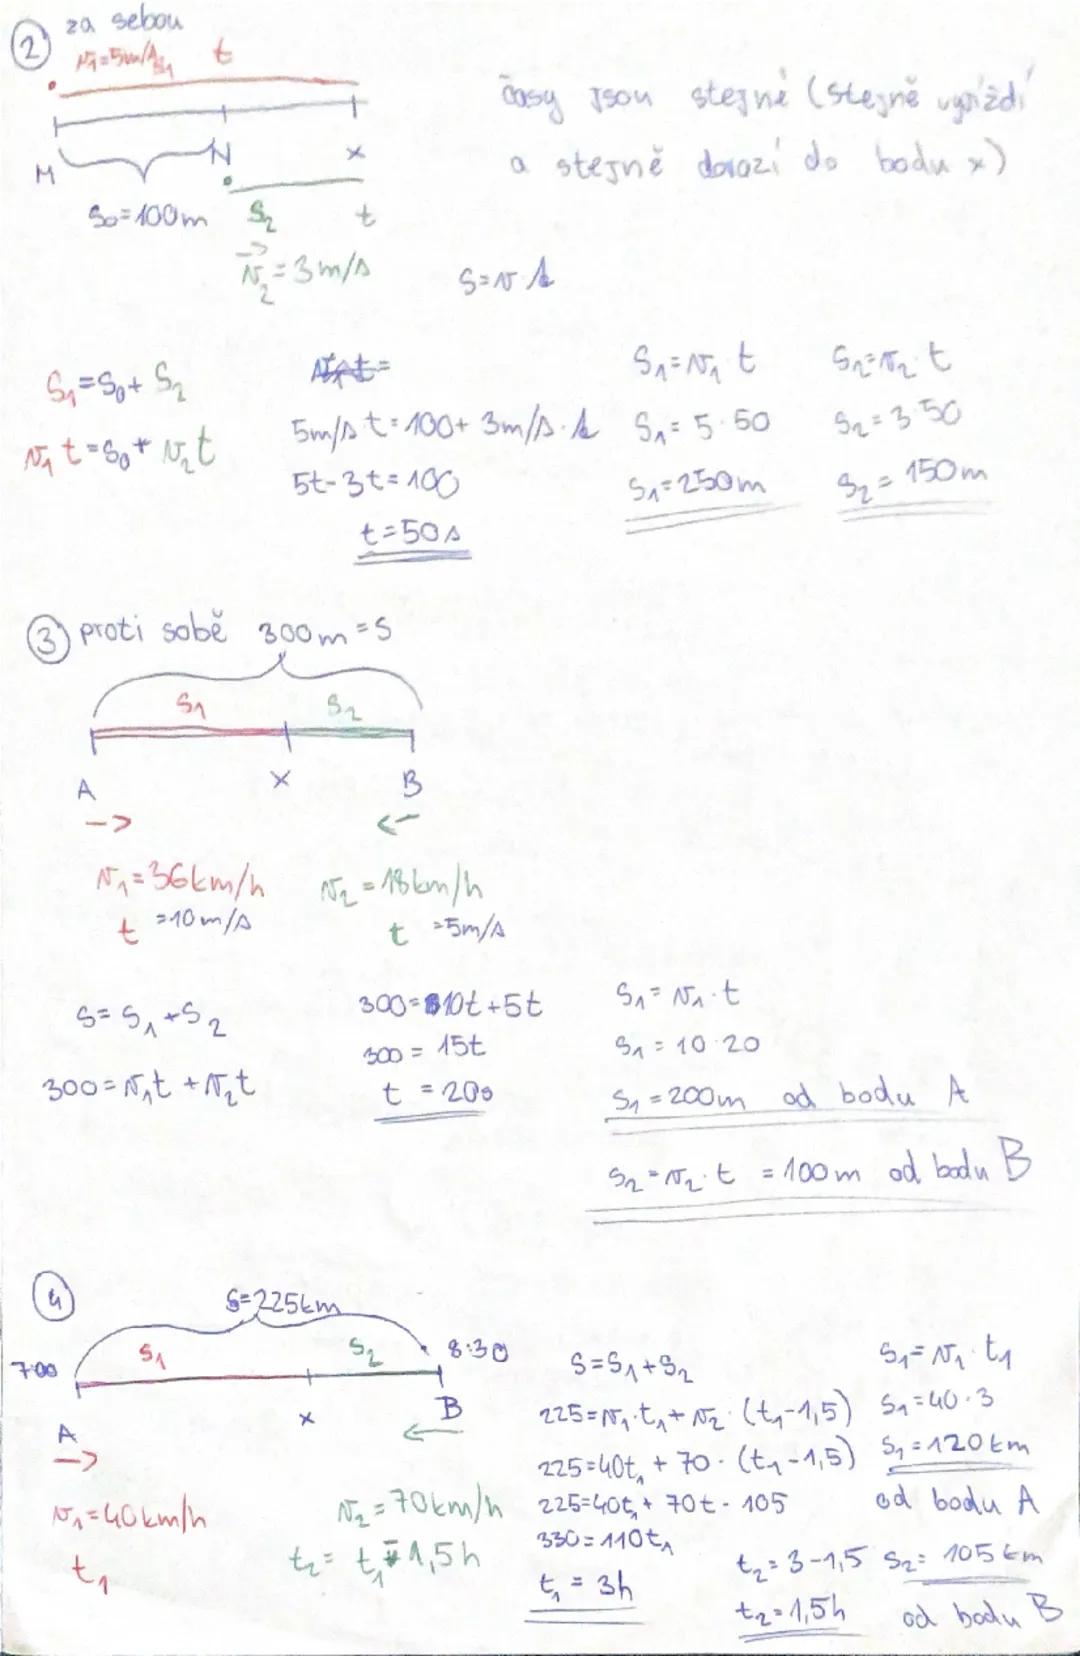 2 za sebou
v₁=5m/s s₁ t
časy jsou stejné (stejně vyjíždí
a stejně dorazí do bodu x)
M N x
s₀=100m s₂ t
v₂=3m/s s=v·t
s₁=s₀+s₂
v₁t=s₀+v₂t
5m/s t=100+3m/s·t
5t-3t=100
t=50s
s₁=v₁ t
s₁=5·50
s₁=250m
s₂=v₂ t
s₂=3·50
s₂=150m
3 proti sobě 300m=s
s₁ s₂
A x B
-> <-
v₁=36km/h v₂=18km/h
t =10m/s t =5m/s
s=s₁+s₂
300=v₁t+v₂t
300=10t+5t
300=15t
t=20s
s₁=v₁·t
s₁=10·20
s₁=200m od bodu A
s₂=v₂·t =100m od bodu B
4 s=225km
7:00 s₁ s₂ 8:30
A x B
->
v₁=40km/h v₂=70km/h
t₁ t₂=t₁-1,5h
s=s₁+s₂
225=v₁·t₁+v₂·(t₁-1,5)
225=40t₁+70·(t₁-1,5)
225=40t₁+70t-105
330=110t₁
t₁=3h
s₁=v₁·t₁
s₁=40·3
s₁=120km
od bodu A
t₂=3-1,5
t₂=1,5h
s₂=105km
od bodu B